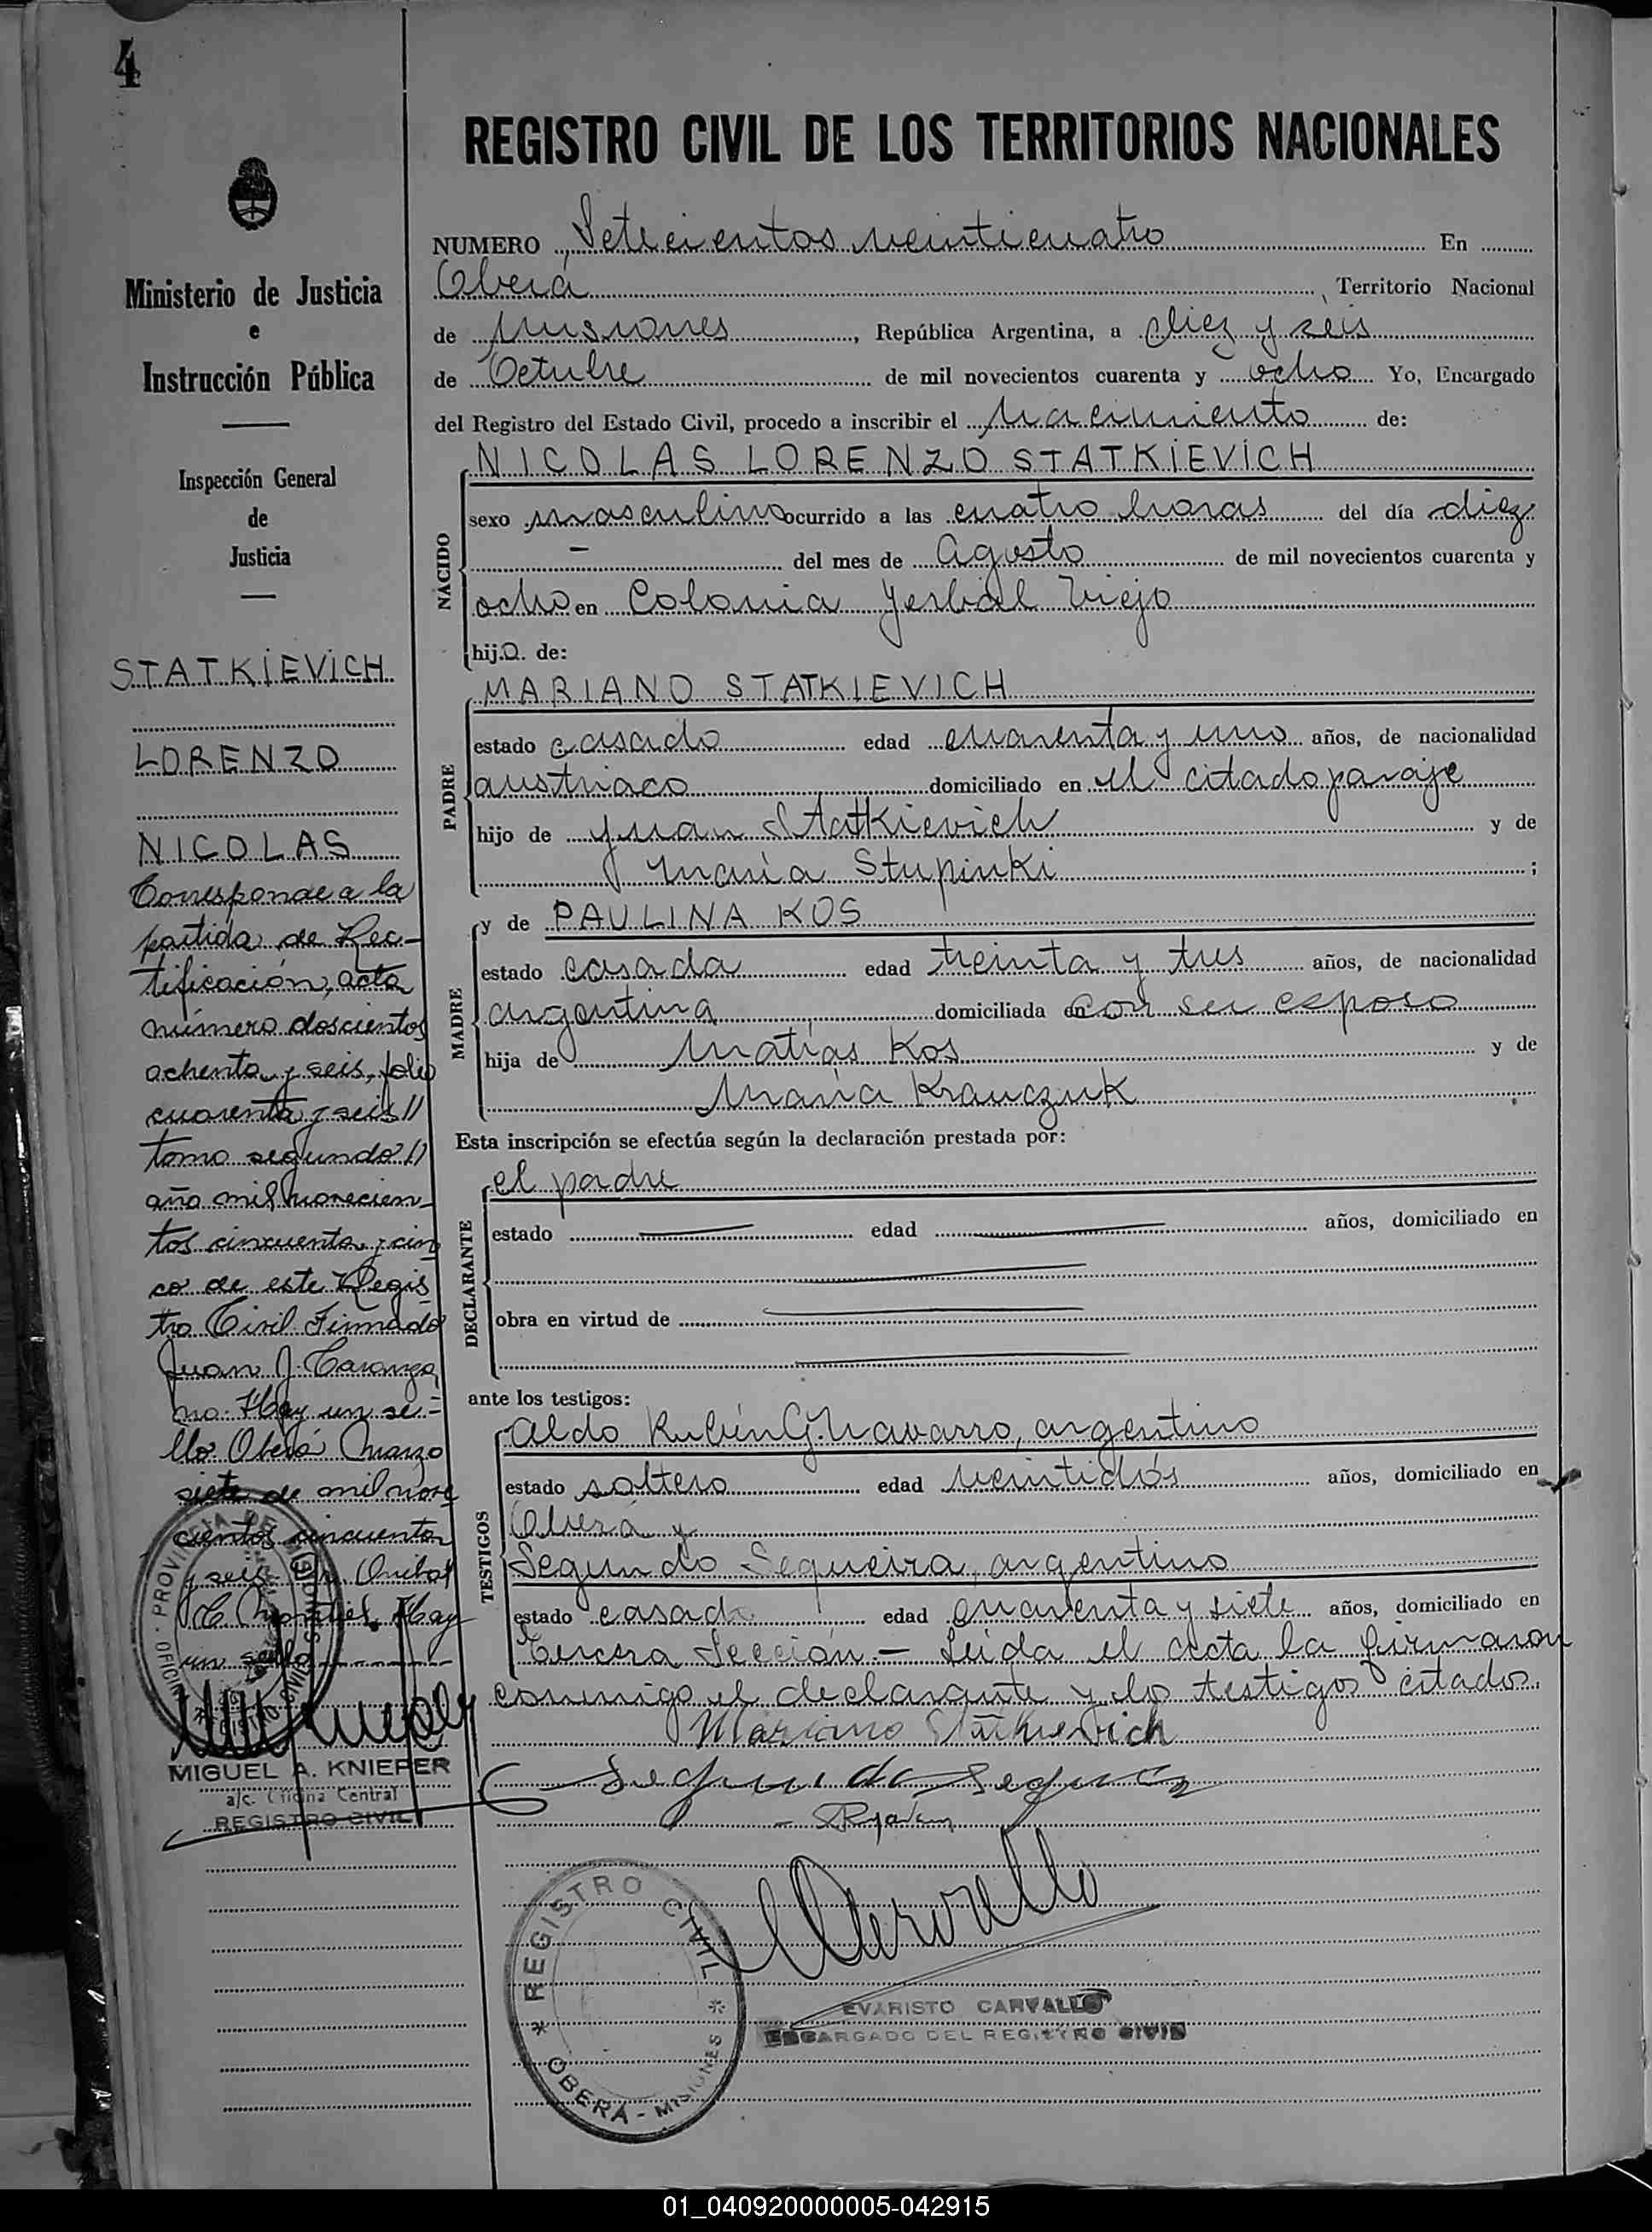 4
REGISTRO CIVIL DE LOS TERRITORIOS NACIONALES
Ministerio de Justicia
e
Instrucción Pública
Inspección General
de
Justicia
STATKIEVICH
LORENZO
NICOLAS
Corresponde a la
partida de Rec-
tificación, acta
número doscientos
ochenta y seis, folio
cuarenta y seis //
tomo segundo //
año mil novecien-
tos cincuenta y cin
co de este Regis
tro Civil Firmado
Juan J.
Hay un se=
llo Oberá Marzo
siete de mil nove
cientos cincuenta
y seis
Hay
un sello
PROVINCIA DE MISIONES
MIGUEL A. KNIEPER
a/c. Oficina Central
REGISTRO CIVIL
NUMERO Setecientos veinticuatro En
Oberá, Territorio Nacional
de Misiones, República Argentina, a diez y seis
de Octubre de mil novecientos cuarenta y ocho Yo, Encargado
del Registro del Estado Civil, procedo a inscribir el nacimiento de:
NACIDO
NICOLAS LORENZO STATKIEVICH
sexo masculino ocurrido a las cuatro horas del día diez
— del mes de Agosto de mil novecientos cuarenta y
ocho en Colonia Yerbal Viejo
hijo de:
PADRE
MARIANO STATKIEVICH
estado casado edad cuarenta y uno años, de nacionalidad
austriaco domiciliado en el citado paraje
hijo de Juan Statkievich y de
María Stupinki ;
MADRE
y de PAULINA KOS
estado casada edad treinta y tres años, de nacionalidad
argentina domiciliada en con su esposo
hija de Matías Kos y de
María Krauczuk
Esta inscripción se efectúa según la declaración prestada por:
DECLARANTE
el padre
estado edad años, domiciliado en
obra en virtud de
ante los testigos:
TESTIGOS
Aldo Rubén G. Navarro, argentino
estado soltero edad veintidós años, domiciliado en
Oberá y
Segundo Sequeira, argentino
estado casado edad cuarenta y siete años, domiciliado en
Tercera Sección — Leida el acta la firmaron
conmigo el declarante y los testigos citados.
Mariano Statkievich
Segundo
REGISTRO CIVIL
OBERÁ - MISIONES
EVARISTO CARVALLO
ENCARGADO DEL REGISTRO CIVIL
01_040920000005-042915